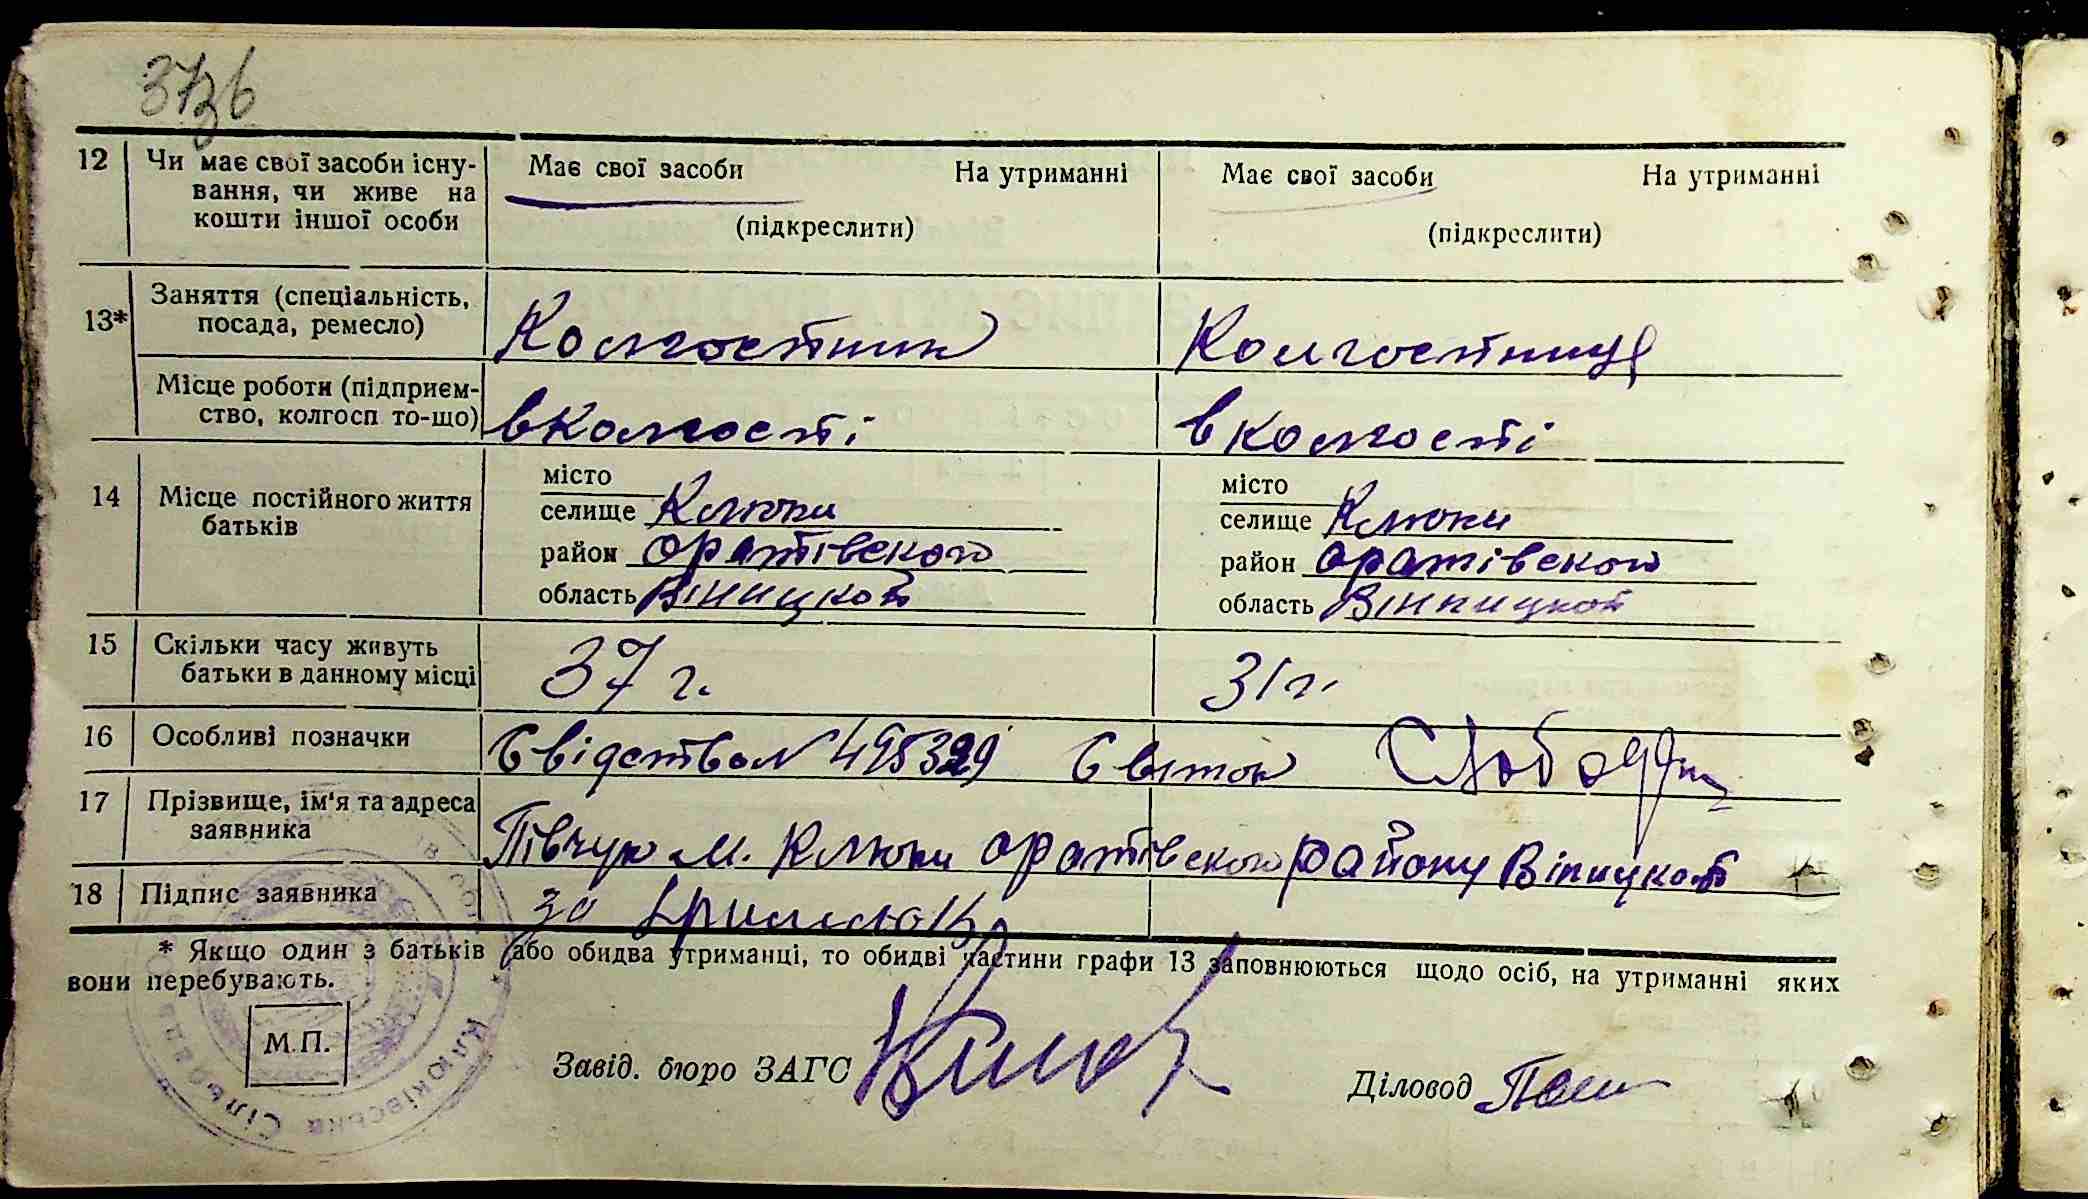 37зв
12 Чи має свої засоби існу- Має свої засоби На утриманні Має свої засоби На утриманні
вання, чи живе на
кошти іншої особи (підкреслити) (підкреслити)
Заняття (спеціальність,
13* посада, ремесло) Колгостник Колгостниця
Місце роботи (підприєм-
ство, колгосп то-що) в Колгості в колгості
місто місто
14 Місце постійного життя селище Клюки селище Клюки
батьків район оратівского район оратівского
область Вінницкої область Вінницкої
15 Скільки часу живуть
батьки в данному місці 37 г. 31 г.
16 Особливі позначки Свідство № 495329
17 Прізвище, ім'я та адреса
заявника Півчук М. Клюки оратівского району Віницкої
18 Підпис заявника за
* Якщо один з батьків або обидва утриманці, то обидві частини графи 13 заповнюються щодо осіб, на утриманні яких
вони перебувають.
М.П.
Завід. бюро ЗАГС
Діловод
Клюківська Сільрада